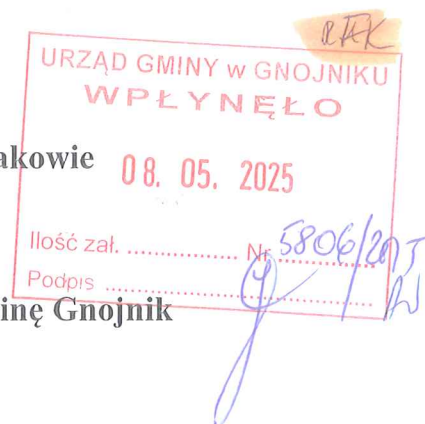 URZĄD GMINY w GNOJNIKU
WPŁYNĘŁO
akowie
08. 05. 2025
Ilość zał. .................. Nr 5806/2025
Podpis ..........................................
inę Gnojnik